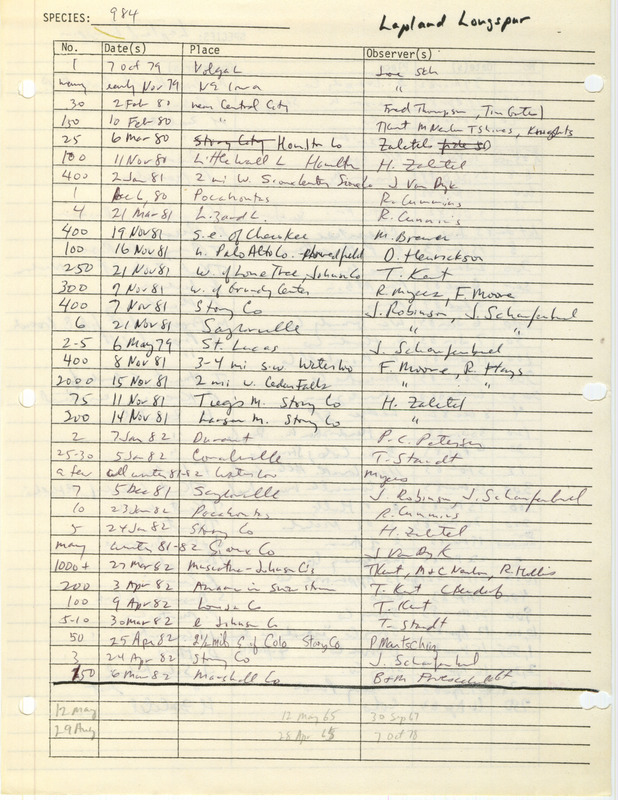 SPECIES: 984 Lapland Longspur
No. Date(s) Place Observer(s)
1 7 Oct 79 Volga L
many early Nov 79 NE Iowa "
30 2 Feb 80 near Central City Fred Thompson, Tim
150 10 Feb 80 " TKent M Newlon TShires,
25 6 Mar 80 Story City Hamilton Co Zaletel
100 11 Nov 81 Little Wall L Hamilton H. Zaletel
400 2 Jan 81 2 mi W. Sioux Center J Van Dyk
1 Dec 6, 80 Pocahontas R. Cummins
4 21 Mar 81 Lizard L. R. Cummins
400 19 Nov 81 s.e. of Cherokee M. Brewer
100 16 Nov 81 n. Palo Alto Co. plowed field D. Henrickson
250 21 Nov 81 w. of Lone Tree, Johnson Co T. Kent
300 7 Nov 81 w. of Grundy Center R Myers, F. Moore
400 7 Nov 81 Story Co J. Robinson, J. Schaufenbuel
6 21 Nov 81 Saylorville " "
2-5 6 May 79 St. Lucas J. Schaufenbuel
400 8 Nov 81 3-4 mi s.w. Waterloo F. Moore, R. Hays
2000 15 Nov 81 2 mi w. Cedar Falls " "
75 11 Nov 81 M. Story Co H. Zaletel
200 14 Nov 81 Larson M. Story Co "
2 7 Jan 82 Durant P.C. Petersen
25-30 5 Jan 82 Coralville T. Staudt
a few all winter 81-82 Waterloo Myers
7 5 Dec 81 Saylorville J Robinson, J. Schaufenbuel
10 23 Jan 82 Pocahontas R. Cummins
5 24 Jan 82 Story Co H. Zaletel
many winter 81-82 Sioux Co J Van Dyk
1000+ 27 Mar 82 Muscatine-Johnson Co's TKent, M+C Newlon, R. Hollis
200 3 Apr 82 Amana in snow storm T. Kent C Bendorf
100 9 Apr 82 Louisa Co T. Kent
5-10 30 Mar 82 e Johnson Co T. Staudt
50 25 Apr 82 2½ mi S of Colo Story Co P Martsching
3 24 Apr 82 Story Co J. Schaufenbuel
150 6 Mar 82 Marshall Co B+M
12 May 12 May 65 30 Sep 67
29 Aug 28 Apr 65 7 Oct 78